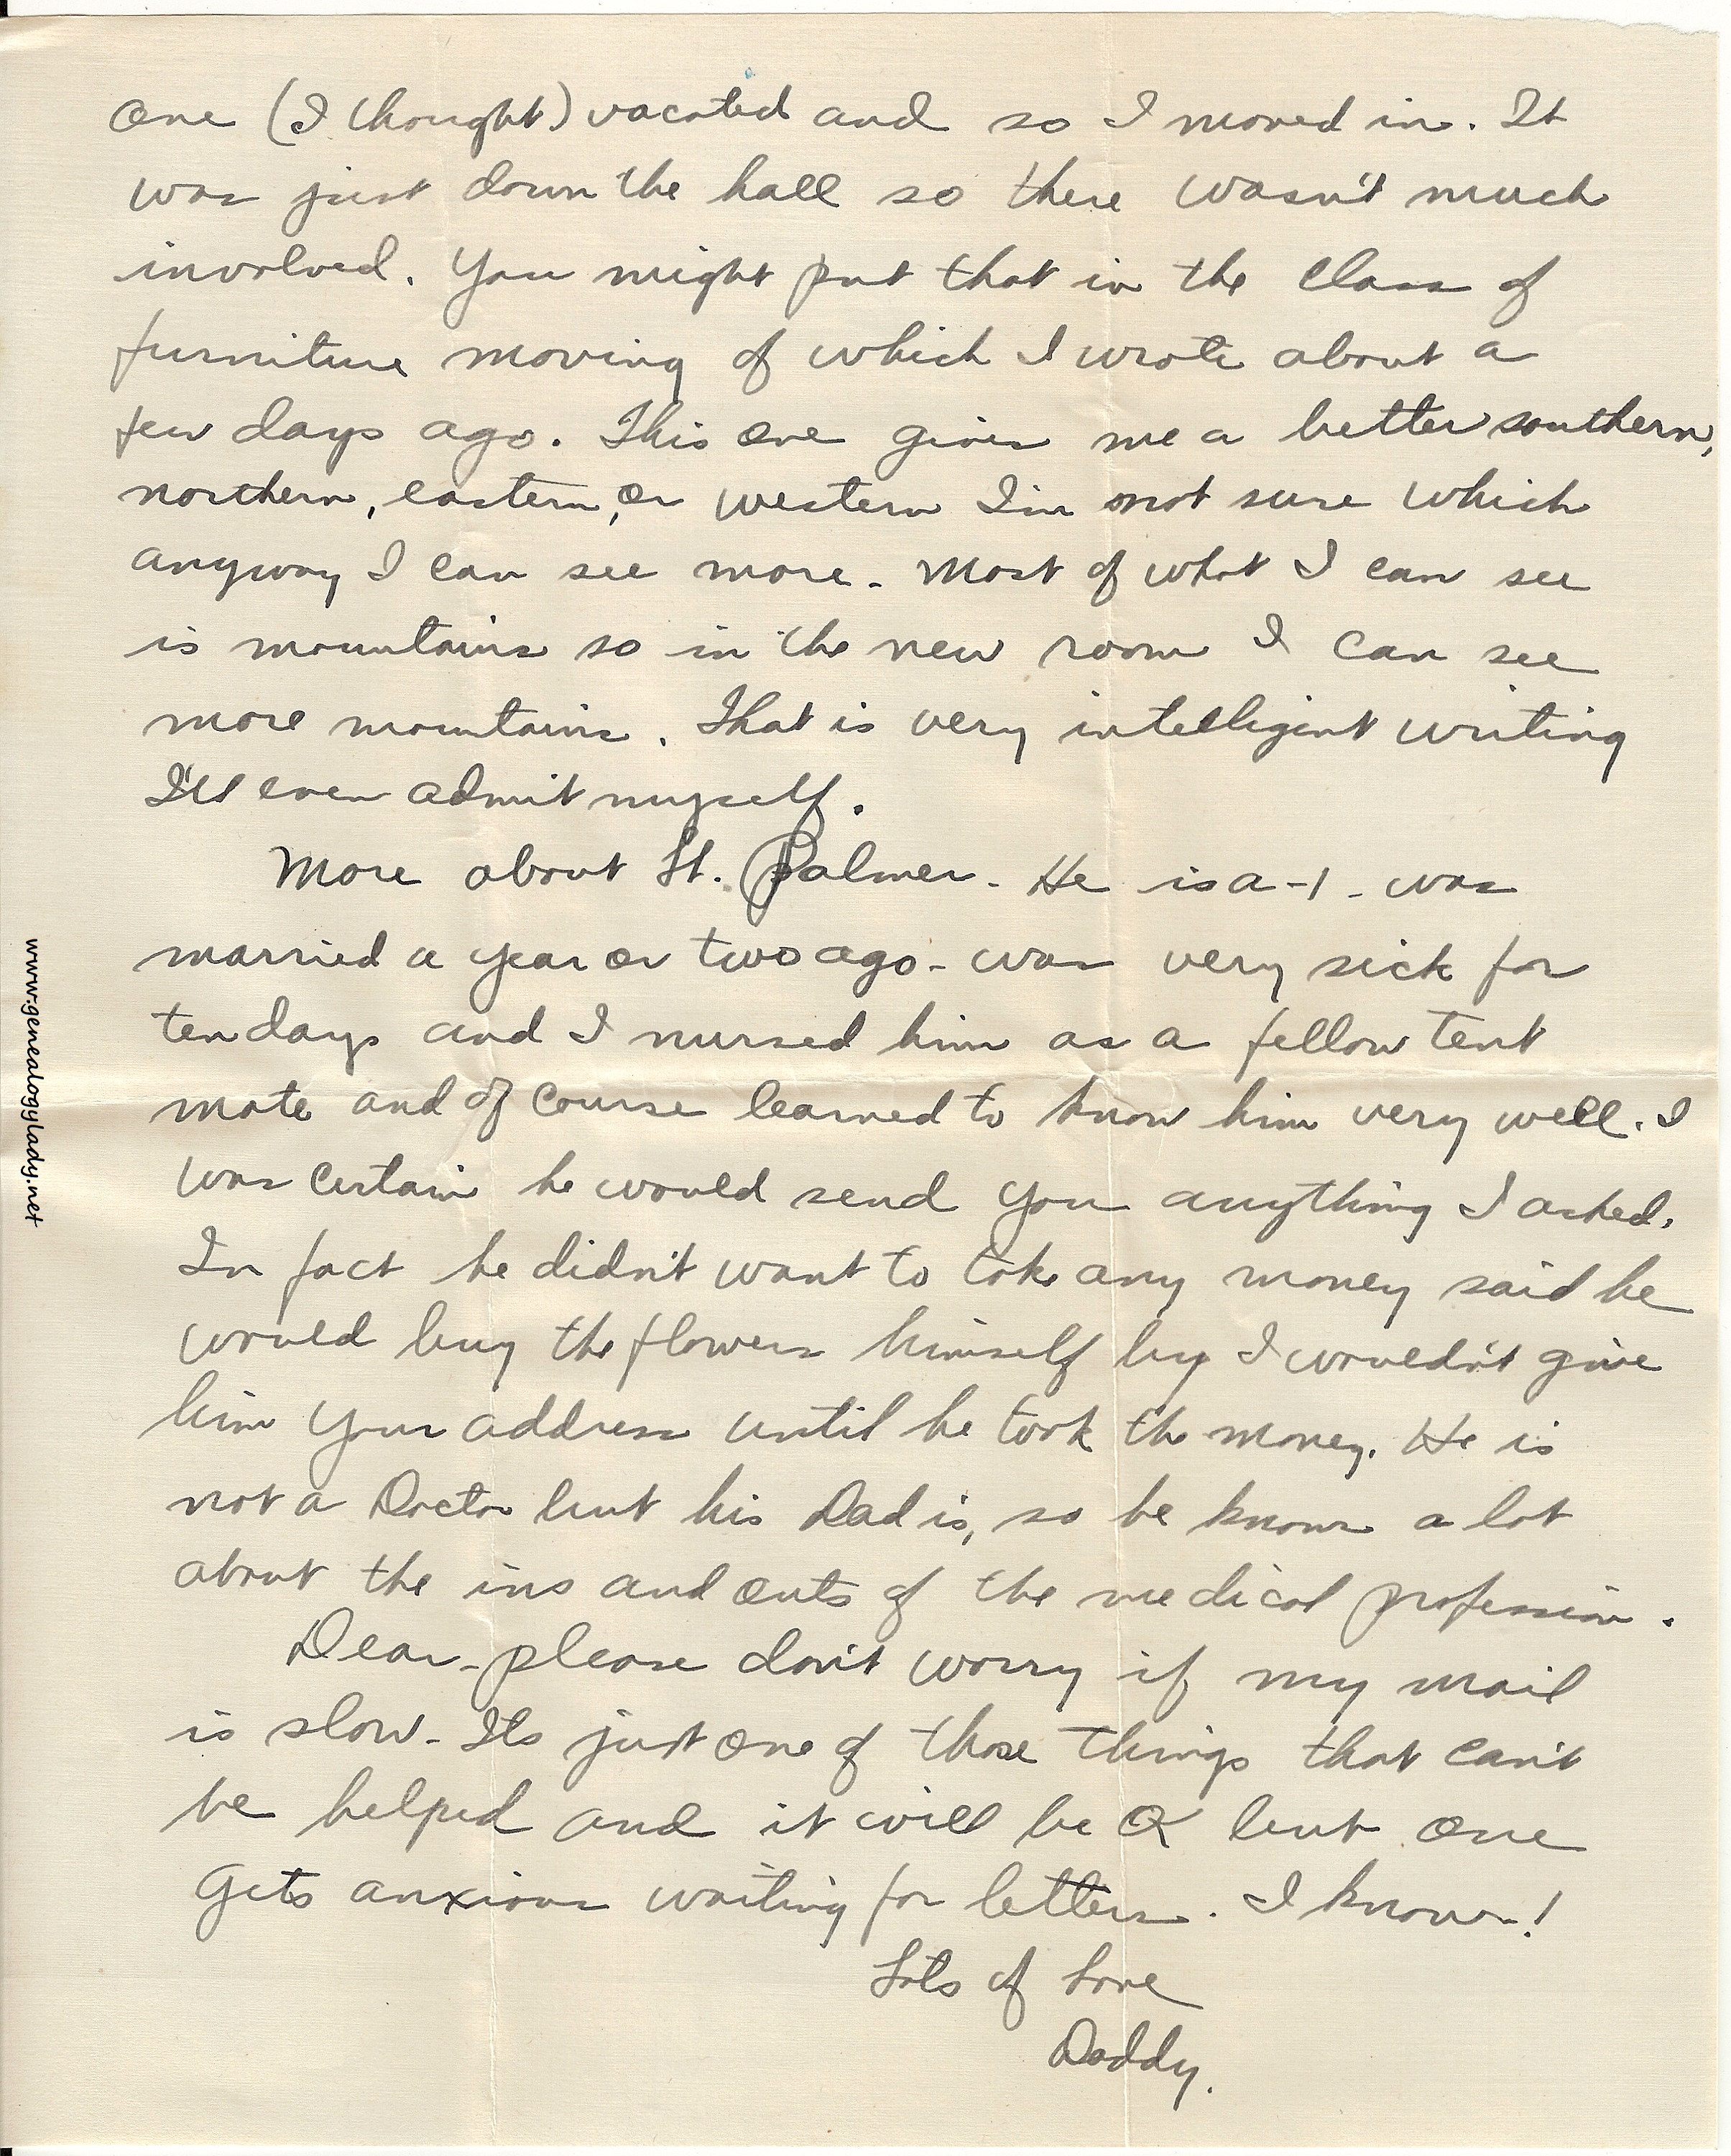 one (I thought) vacated and so I moved in. It
was just down the hall so there wasn't much
involved. You might put that in the class of
furniture moving of which I wrote about a
few days ago. This one gives me a better southern,
northern, eastern, or western I'm not sure which
anyway I can see more. Most of what I can see
is mountains so in the new room I can see
more mountains. That is very intelligent writing
I'll even admit myself.
More about Lt. Palmer - He is a-1 - was
married a year or two ago - was very sick for
ten days and I nursed him as a fellow tent
mate and of course learned to know him very well. I
was certain he would send you anything I asked.
In fact he didn't want to take any money said he
would buy the flowers himself by I wouldn't give
him your address until he took the money. He is
not a Doctor but his Dad is, so he knows a lot
about the ins and outs of the medical profession.
Dear - please don't worry if my mail
is slow - Its just one of those things that can't
be helped and it will be OK but one
gets anxious waiting for letters. I know!
Lots of Love
Daddy.
www.genealogylady.net